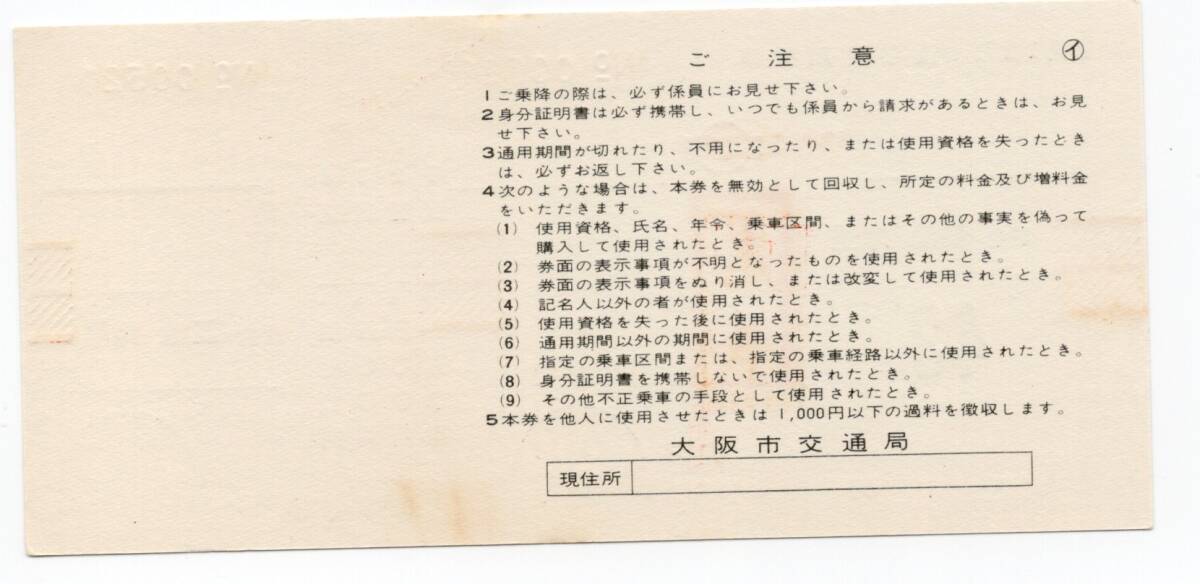 ご注意 ㋑
1 ご乗降の際は、必ず係員にお見せ下さい。
2 身分証明書は必ず携帯し、いつでも係員から請求があるときは、お見
せ下さい。
3 通用期間が切れたり、不用になったり、または使用資格を失ったとき
は、必ずお返し下さい。
4 次のような場合は、本券を無効として回収し、所定の料金及び増料金
をいただきます。
(1) 使用資格、氏名、年令、乗車区間、またはその他の事実を偽って
購入して使用されたとき。
(2) 券面の表示事項が不明となったものを使用されたとき。
(3) 券面の表示事項をぬり消し、または改変して使用されたとき。
(4) 記名人以外の者が使用されたとき。
(5) 使用資格を失った後に使用されたとき。
(6) 通用期間以外の期間に使用されたとき。
(7) 指定の乗車区間または、指定の乗車経路以外に使用されたとき。
(8) 身分証明書を携帯しないで使用されたとき。
(9) その他不正乗車の手段として使用されたとき。
5 本券を他人に使用させたときは1,000円以下の過料を徴収します。
大阪市交通局
現住所